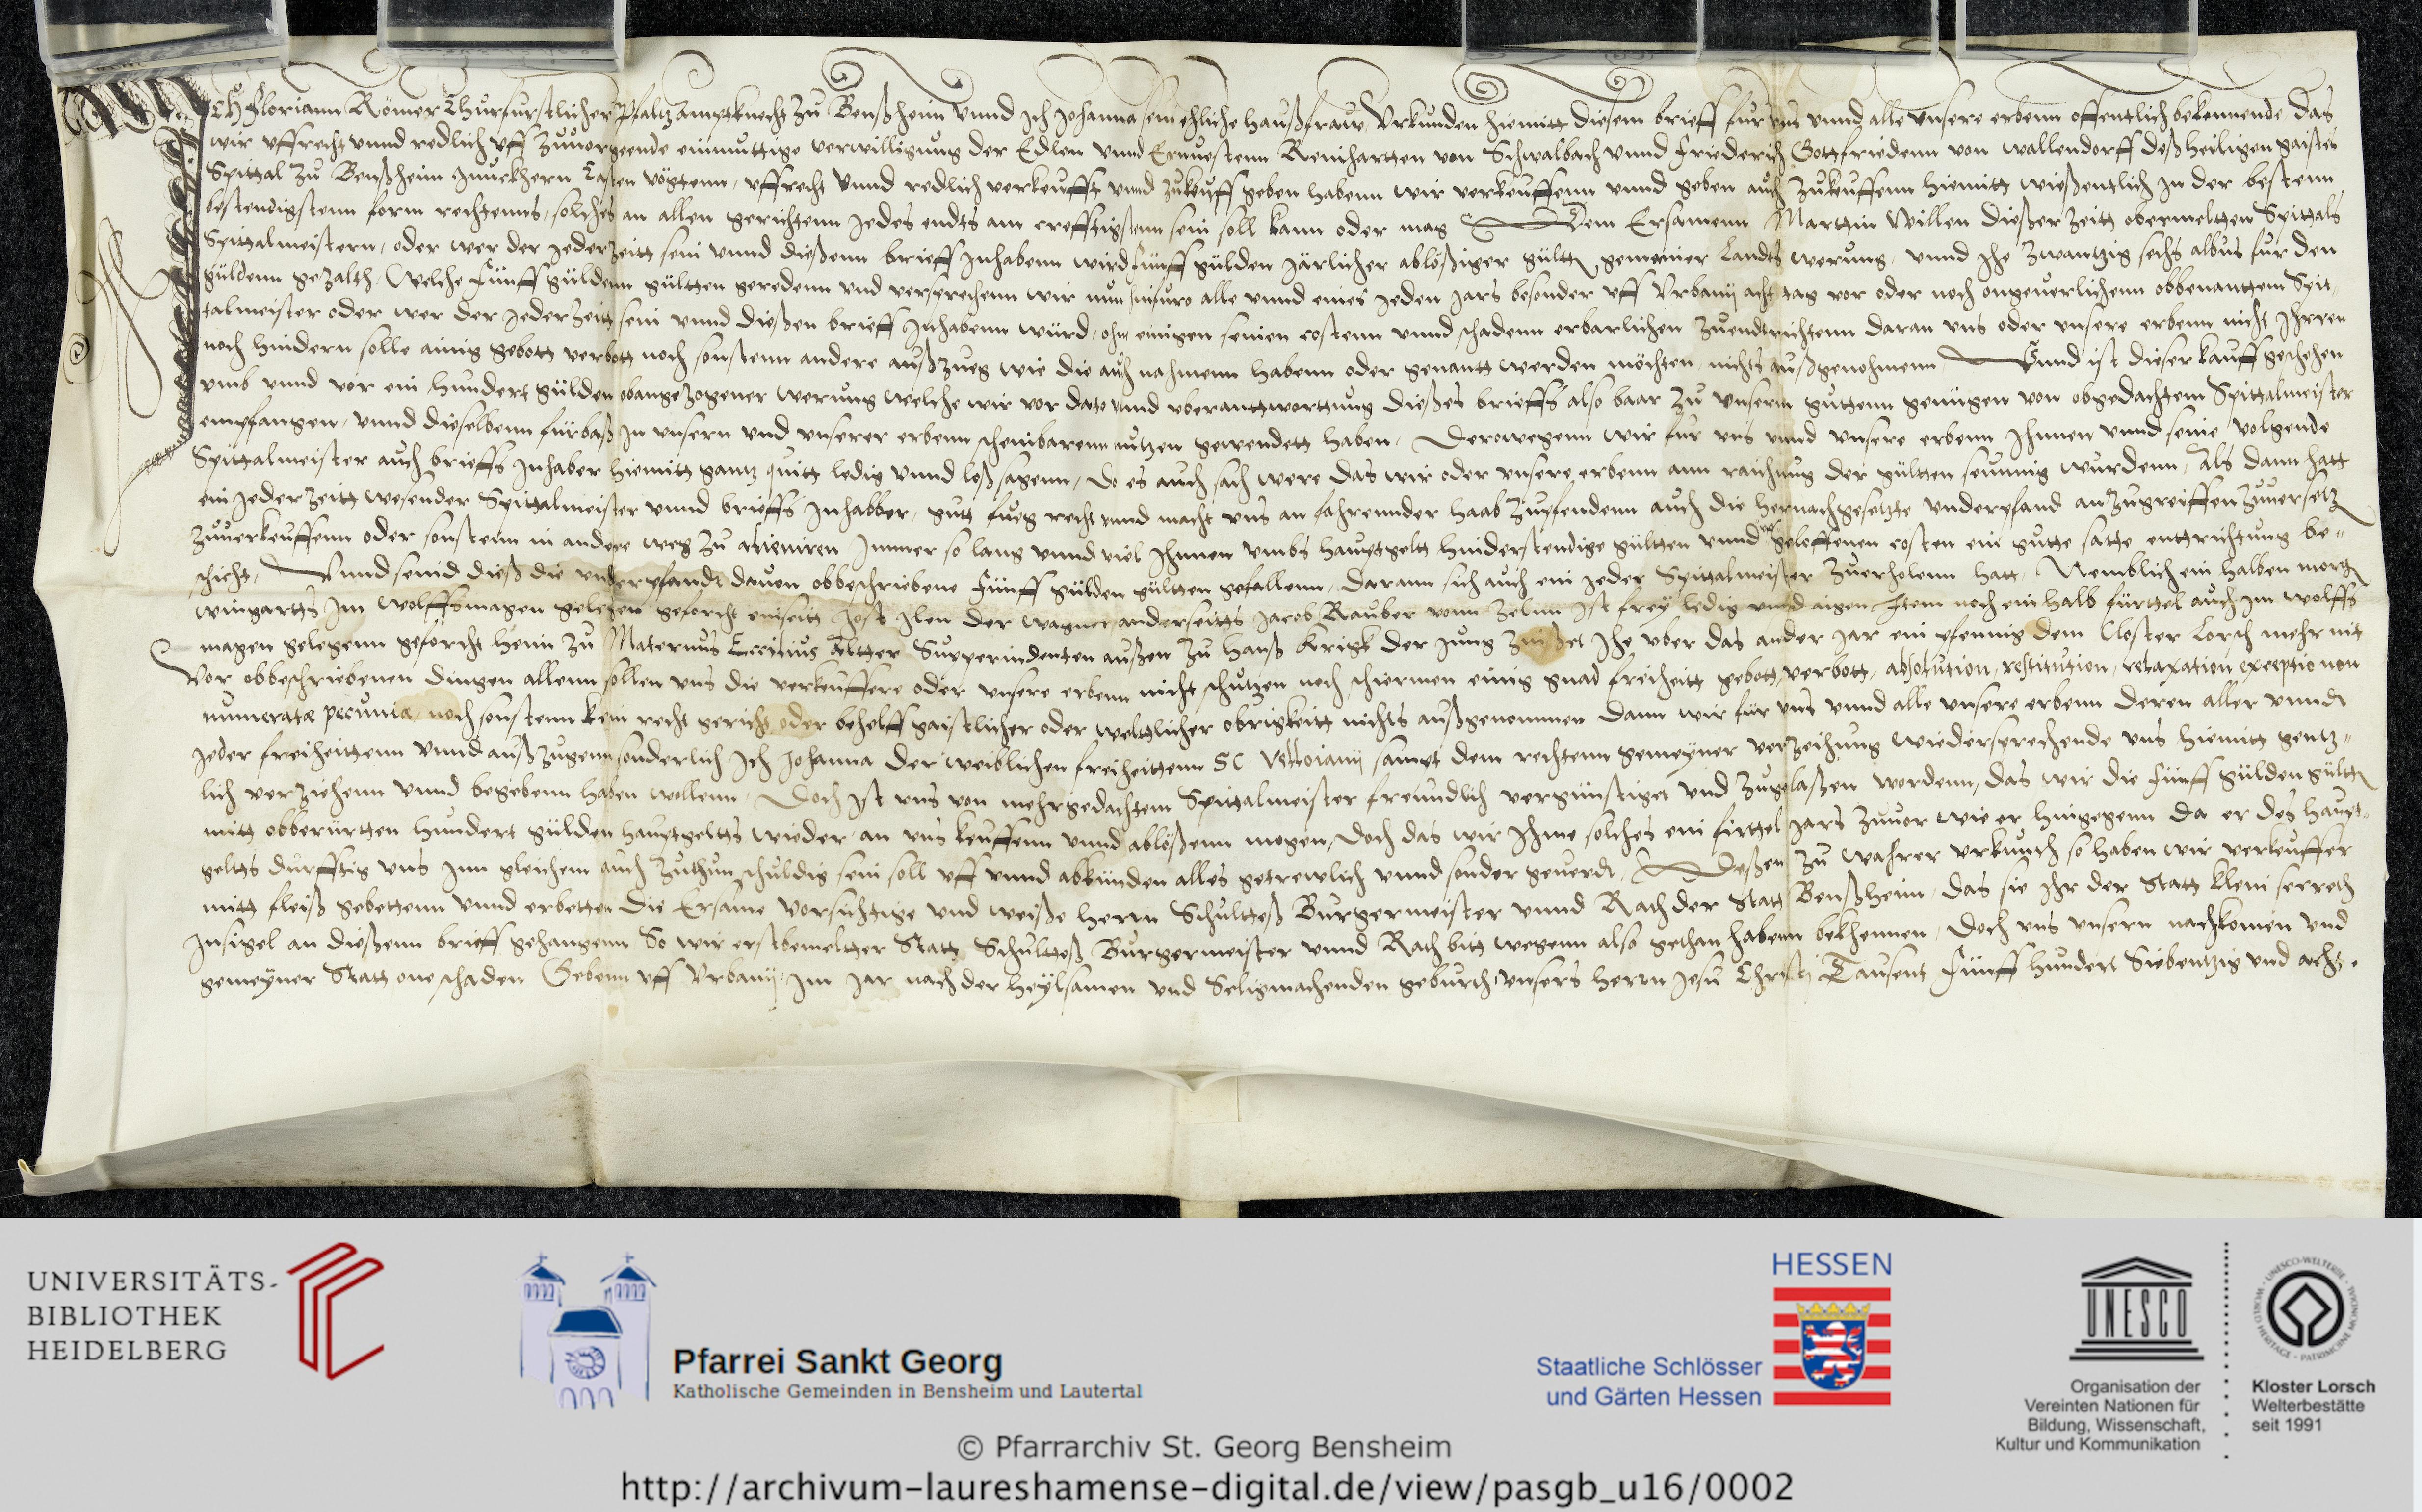 ICH Floriann Römer Churfurstlicher Pfaltz amptknecht zu Benßheim vnnd Ich Johanna sein ehliche haußfrawe, Vrkunden hiemitt diesem brieff fur vns vnnd alle vnsere erbenn offentlich bekennende, das
wir vffrecht vnnd redlich vff zuuorgeende einmuttige verwilligung der Edlen vnnd Ernuestenn Reinhartten von Schwalbach vnnd Friederich Gottfriedenn von wallendorff deß heiligen gaistes
Spittal zu Benßheim Junckhern Casten vögtenn, vffrecht vnnd redlich verkeufft vnnd zukeuff geben habenn wir verkeuffenn vnnd geben auch zukeuffenn hiemitt wießentlich in der bestenn
bestendigstenn form rechtenns, solches an allen gerichtenn Jedes endts am crefftigstenn sein soll kann oder mag Dem Ersamenn Marttin Willen dießer zeitt obermeltten Spittals
Spittalmeistern, oder wer der Jederzeitt sein vnnd dießenn brieff Inhabenn wird Fünff gülden Järlicher ablößiger gültt gemeiner Landts werung, vnnd Jhe zwantzig sechs albus fur den
güldenn gezaltth. Welche Fünff güldenn gültten geredenn vnd versprechenn wir nun hinfuro alle vnnd eines Jeden Jars besonder vff Vrbanij acht tag vor oder noch ongeuerlichenn obbenanttem Spit-
talmeister oder wer der Jederzeitt sein vnnd dießen brieff Inhabenn würd, ohn einigen seinen costenn vnnd schadenn erbarlichen zuendtrichtenn daran vns oder vnsere erbenn nicht Jhrren
noch hindern solle ainig gebott verbott noch sonstenn andere außzueg wie die auch nahmenn habenn oder genantt werden möchten, nichts außgenohmenn. Vnnd ist dieser kauff geschehen
vmb vnnd vor ein hundert gülden obangezogener werung welche wir vor dato vnnd vberanttworttung dießes brieffs also baar zu vnserm guttenn genügen von obgedachtem Spittalmeister
empfangen, vnnd dieselbenn fürbaß In vnsern vnd vnserer erbenn scheinbarenn nutzen gewendett haben. Derowegenn wir fur vns vnnd vnsere erbenn Jhnnen vnnd seine volgende
Spittalmeister auch brieffs Inhaber hiemitt gantz quitt ledig vnnd loß sagenn, Do es auch sach were das wir oder vnsere erbenn ann raichung der gültten seumig wurdenn, Als dann hatt
ein Jederzeitt wesender Spittalmeister vnnd brieffs Inhabber, gutt fueg recht vnnd macht vns an fahrennder haab zupfendenn auch die hernachgesetzte vnderpfand anzugreiffen zuuersetz
zuuerkeuffenn oder sonstenn in andere weg zu alieniren Immer so lang vnnd viel Jhnnen vmbs hauptgeltt hinderstendige gültten vnnd geloffenen costen ein gutte satte enttrichtung be-
schicht. Vnnd seind dieß die vnderpfandt dauon obbeschriebene Fünff gülden gültten gefallenn, darann sich auch ein Jeder Spittalmeister zuerholenn hatt. Nemblich ein halben morg
wingartts Im wolffsmagen gelegen geforcht einseitt Jost Jlen der wagner anderseitts Jacob Rauber vonn zelnn Ist frey ledig vnnd aigen. Item noch ein halb fürttel auch Im wolffs
magen gelegenn geforcht hinin zu Maternus Eccisius Eltter Supperindenten außen zu Hanß Krigk der Jung Jhe vber das ander Jar ein pfennig dem Closter Lorch mehr nit
Vor obbeschriebenen dingen allenn sollen vns die verkeuffere oder vnsere erbenn nicht schutzen noch schirmen einig gnad freiheitt gebott, verbott, absolution, restitution, relaxation exceptio non
numeratæ pecuniæ, noch sonstenn kein recht gericht oder behelff gaistlicher oder welttlicher obrigkeitt nichts außgenommen dann wir für vns vnnd alle vnsere erbenn deren aller vnnd
Jeder freiheittenn vnnd außzugenn sonderlich Ich Johanna der weiblichen freiheittenn SC. Velloianij sampt dem rechtenn gemeyner verzeihung wiedersprechende vns hiemitt gentz-
lich verziehenn vnnd begebenn haben wollenn. Doch Ist vns von mehrgedachtem Spittalmeister freundlich vergünstiget vnd zugelaßen wordenn, das wir die Fünff gülden gültt
mitt obberürtten hundert gülden hauptgeltts wieder an vns keuffenn vnnd ablößenn mogen, Doch das wir Jhme solches ein firttel Jars zuuor wie er hingegenn da er des haupt-
geltts durfftig vns Inn gleichem auch zuthun schuldig sein soll vff vnnd abkünden alles getrewlich vnnd sonder geuerdt. Deßen zu wahrer vrkunth so haben wir verkeuffer
mitt fleiß gebettenn vnnd erbetten die Ersame vorsichtige vnd weiße herrn Schultteß Burgermeister vnnd Rath der Statt Benßheim, das sie Jhr der Statt klein secreth
Insigel an dießenn brieff gehangenn So wir erstbemeltter Statt Schultteß Burgermeister vnnd Rath bitt wegenn also gethan habenn bekhennen, Doch vns vnsern nachkomen vnd
gemeyner Statt one schaden Gebenn vff Vrbanij Im Jar nach der heylsamen vnd Seligmachenden geburth vnsers Herrn Jesu Christi Tausent Fünff hundert Siebentzig vnd acht.
UNIVERSITÄTS-
BIBLIOTHEK
HEIDELBERG
Pfarrei Sankt Georg
Katholische Gemeinden in Bensheim und Lautertal
HESSEN
Staatliche Schlösser
und Gärten Hessen
UNESCO
Organisation der
Vereinten Nationen für
Bildung, Wissenschaft,
Kultur und Kommunikation
UNESCO-WELTERBE · WORLD HERITAGE · PATRIMOINE MONDIAL
Kloster Lorsch
Welterbestätte
seit 1991
© Pfarrarchiv St. Georg Bensheim
http://archivum-laureshamense-digital.de/view/pasgb_u16/0002